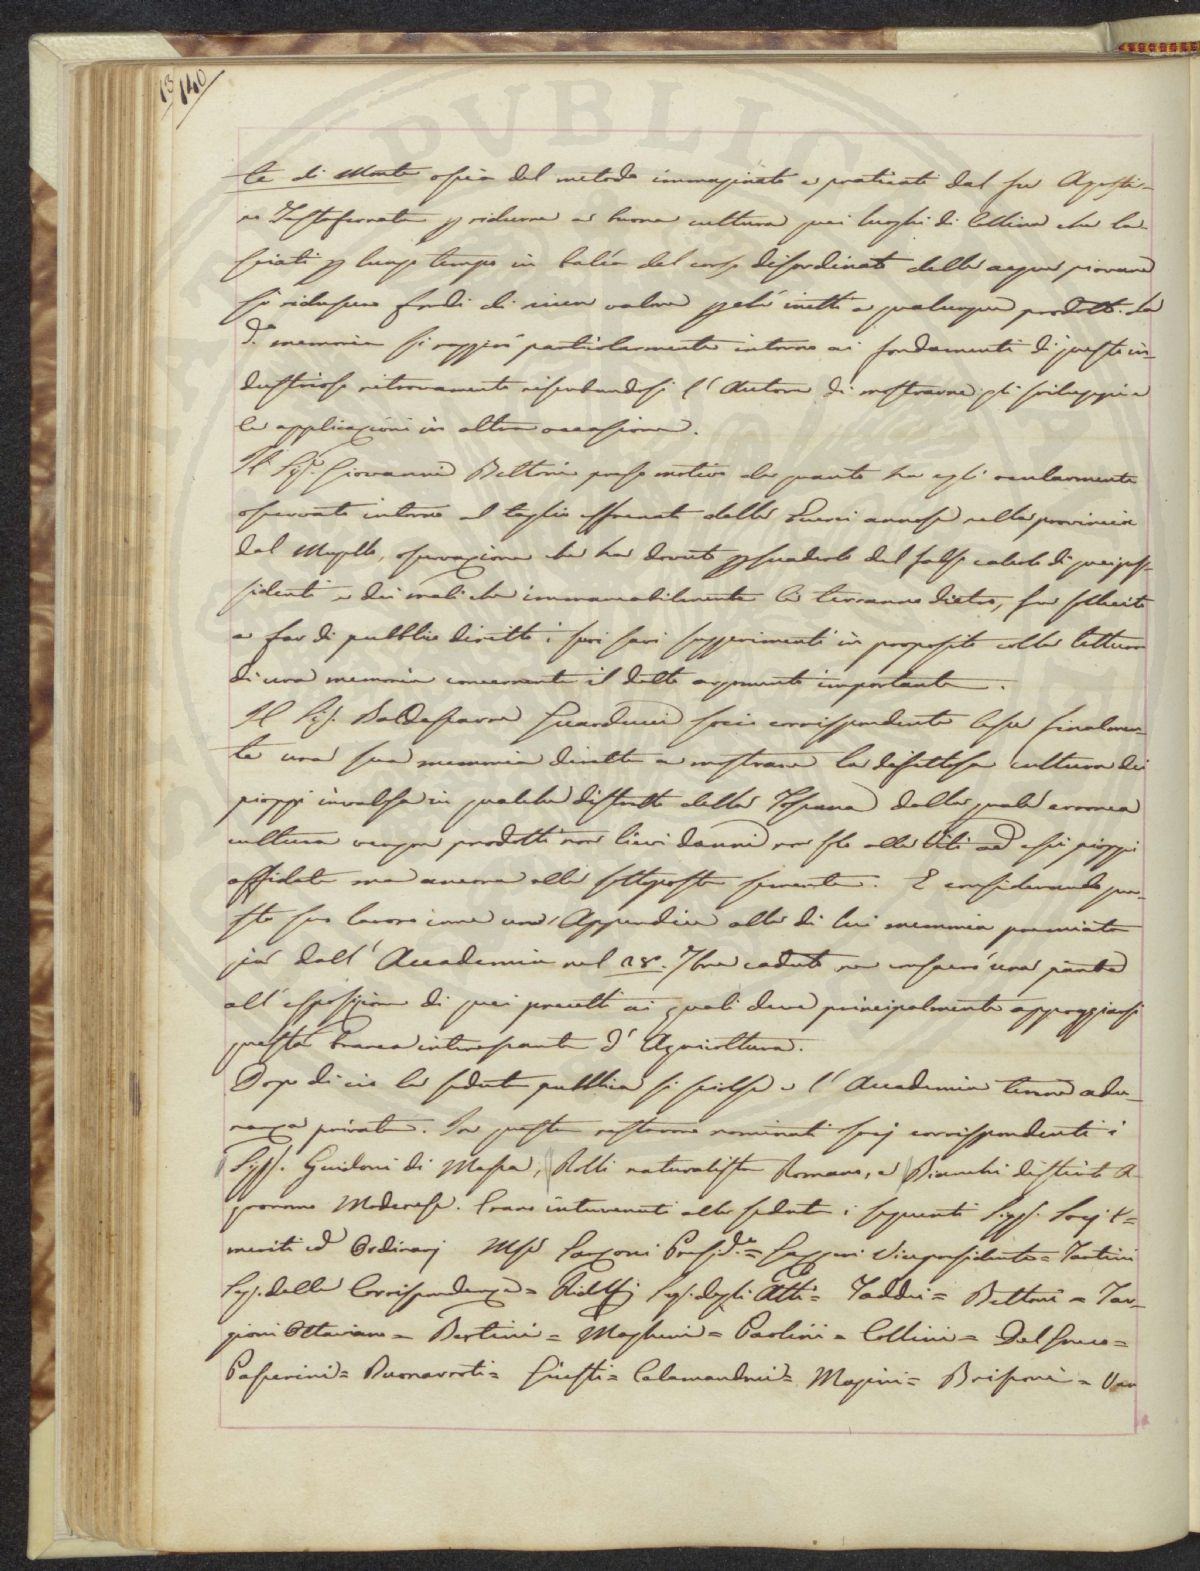 13
140
te di Monte ossia del metodo immaginato e praticato dal fu Agosti=
no Testaferrata p ridurre a buona cultura quei luoghi di Collina che la-
sciati p lungo tempo in balìa del corso disordinato delle acque piovane
si ridussero fondi di niun valore pchè inetti a qualunque prodotto. La
da memoria si raggirò particolarmente intorno ai fondamenti di questo in-
dustrioso ritrovamento riserbandosi l'Autore di mostrarne gli sviluppi e
le applicazioni in altra occasione.
Il Sigr. Giovanni Bettoni prese motivo da quanto ha egli ocularmente
osservato intorno al taglio effrenato delle Querci annose nella provincia
del Mugello, osservazione che ha dovuto psuaderlo del falso calcolo di quei pos-
sidenti e dei mali che immancabilmente le terranno dietro, fu sollecito
a far di pubblico diritto i suoi savi suggerimenti in proposito colla lettura
di una memoria concernente il detto argomento importante.
Il Sig. Baldassarre Guarducci socio corrispondente lesse finalmen-
te una sua memoria diretta a mostrare la difettosa cultura dei
pioppi invalsa in qualche distretto della Toscana dalla quale erronea
cultura vengon prodotti non lievi danni non solo alle Viti ad essi pioppi
affidate ma ancora alle sottoposte semente. E considerando que-
sto suo lavoro come una Appendice alla di lui memoria premiata
già dall'Accademia nel 28. 7bre caduto ne consacrò una parte
all'esposizione di quei precetti ai quali deve principalmente appoggiarsi
questa branca interessante d'Agricoltura.
Dopo di ciò la seduta pubblica si sciolse e l'Accademia tenne adu-
nanza privata. In questa restarono nominati socj corrispondenti i
Sigg. Guidoni di Massa, Rolli naturalista Romano, e Bianchi distinto A-
gronomo Modenese. Erano intervenuti alla seduta i seguenti Sigg. Socj E=
meriti ed Ordinarj Msr Presid.e = Vicepresidente = Tartini
Seg. della Corrispondenza = Ridolfi Seg. degli Atti = Taddei = Bettoni = Tar-
gioni Ottaviano = Bertini = Magheri = Paolini = Collini = Del Greco =
Passerini = Buonarroti = Giusti = Calamandrei = Magini = =